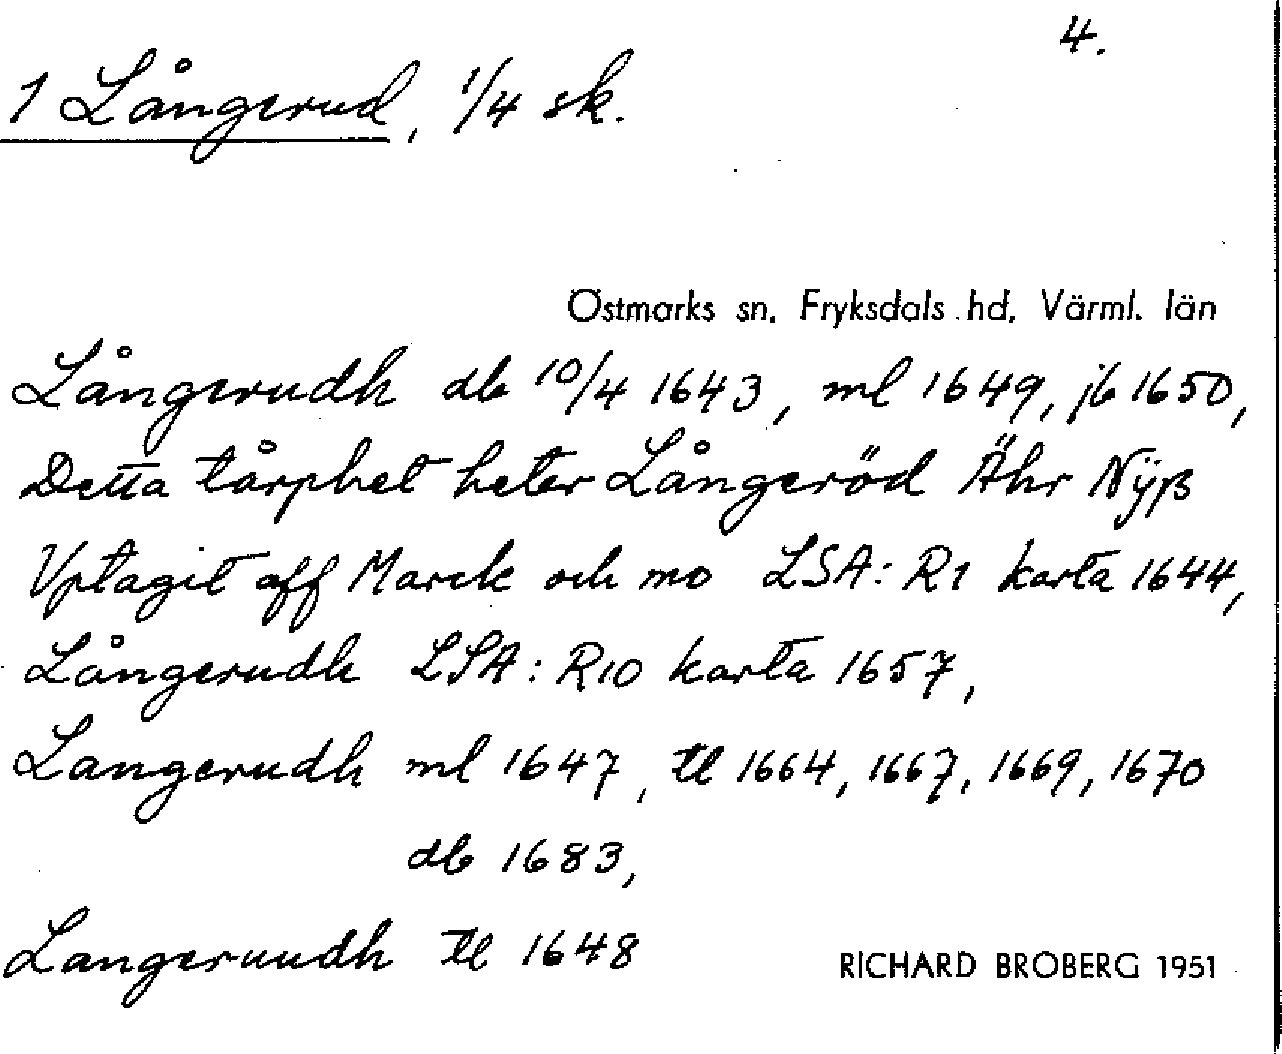 4.
1 Långerud, 1/4 sk.
Östmarks sn. Fryksdals hd. Värml. län
Långerudh db 10/4 1643, ml 1649, jb 1650,
Detta tårphet heter Långeröd Ähr Nÿß
Vptagit aff Marck och mo LSA: R1 karta 1644,
Långerudh LSA: R10 karta 1657,
Langerudh ml 1647, tl 1664, 1667, 1669, 1670
db 1683,
Langeruudh tl 1648
RICHARD BROBERG 1951